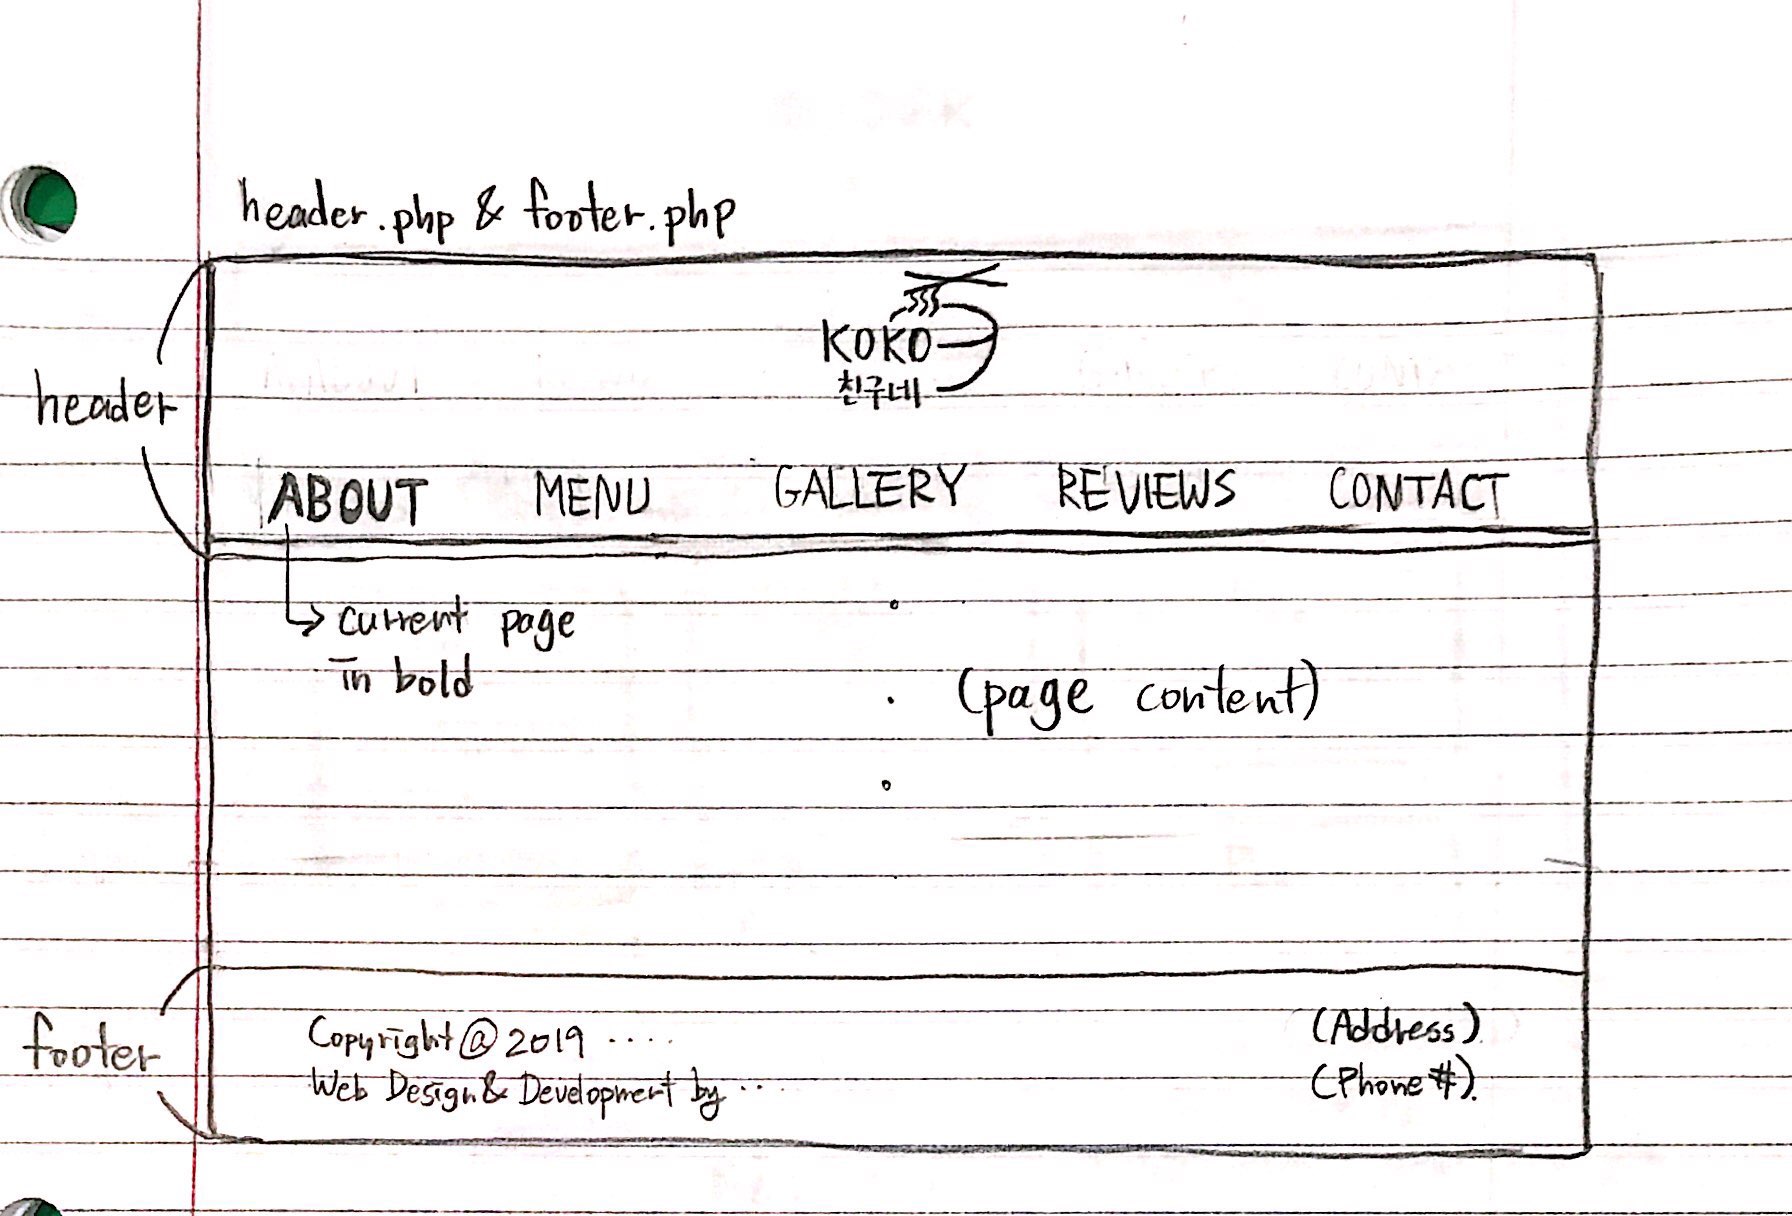 header.php & footer.php
KOKO
친구네
header
ABOUT MENU GALLERY REVIEWS CONTACT
current page
in bold
(page content)
footer
Copyright @ 2019 ....
(Address)
Web Design & Development by ...
(Phone #)